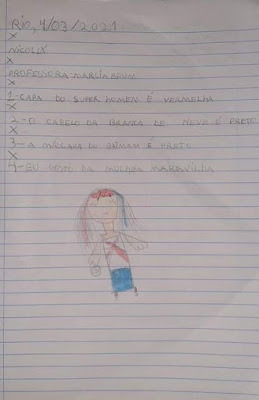 Rio, 4/03/2021
X
NICOLLY
X
PROFESSORA: MARCIA
X
1-CAPA DO SUPER HOMEM É VERMELHA
X
2-O CABELO DA BRANCA DE NEVE É PRETO
X
3-A MÁSCARA DO BATMAN É PRETO
X
4-EU GOSTO DA MULHER MARAVILHA